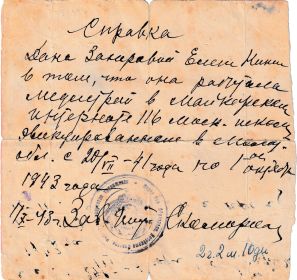 Справка
Дана Захаровой Елене Никит
в том, что она работала
медсестрой в Майкорском
интернате 116 моск. школы
эвакуированном в Молот.
обл. с 20/VII-41 года по 1 октября
1943 года.
1/X-43 г. Зав.
2 г. 2 м. 10 дн